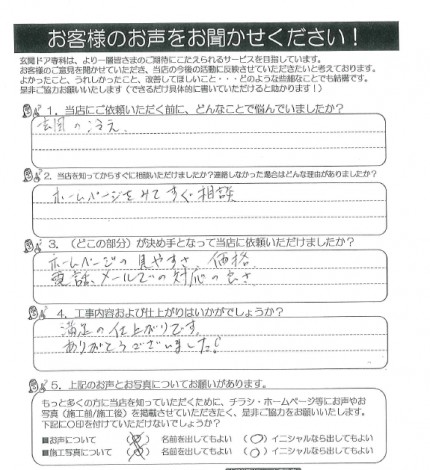 お客様のお声をお聞かせください！
玄関ドア専科は、より一層皆さまのご期待にこたえられるサービスを目指しています。
お客様のご意見を聞かせていただき、当店の今後の活動に反映させていただきたいと考えております。
よかったこと、うれしかったこと、改善してほしいこと・・・どのような些細なことでも結構です。
是非ご協力お願いいたします（できるだけ具体的に書いていただけると助かります！）
1. 当店にご依頼いただく前に、どんなことで悩んでいましたか？
玄関の冷え、
2. 当店を知ってからすぐに相談いただけましたか？連絡しなかった場合はどんな理由がありましたか？
ホームページをみてすぐ相談
3. （どこの部分）が決め手となって当店に依頼いただけましたか？
ホームページの見やすさ、価格、
電話、メールでの対応の良さ
4. 工事内容および仕上がりはいかがでしょうか？
満足の仕上がりです。
ありがとうございました!
5. 上記のお声とお写真についてお願いがあります。
もっと多くの方に当店を知っていただくために、チラシ・ホームページ等にお声やお
写真（施工前/施工後）を掲載させていただきたく、是非ご協力をお願いいたします。
下記に〇印を付けていただけないでしょうか？
■お声について （ ） 名前を出してもよい （○） イニシャルなら出してもよい
■施工写真について （ ） 名前を出してもよい （○） イニシャルなら出してもよい